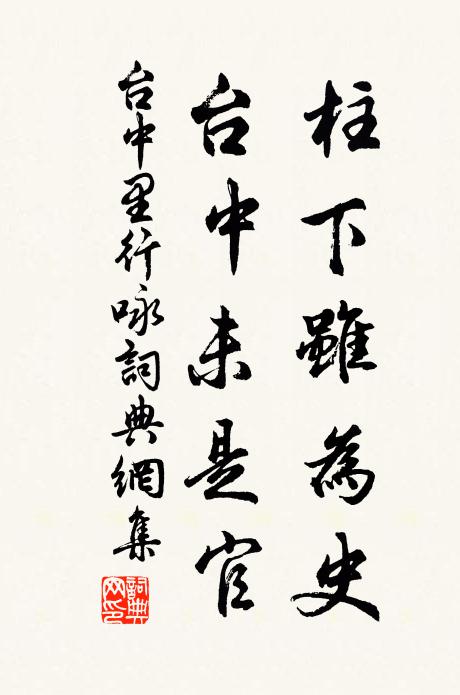 柱下雖為史
台中未是官
台中里行咏詞典網集
詞典網印